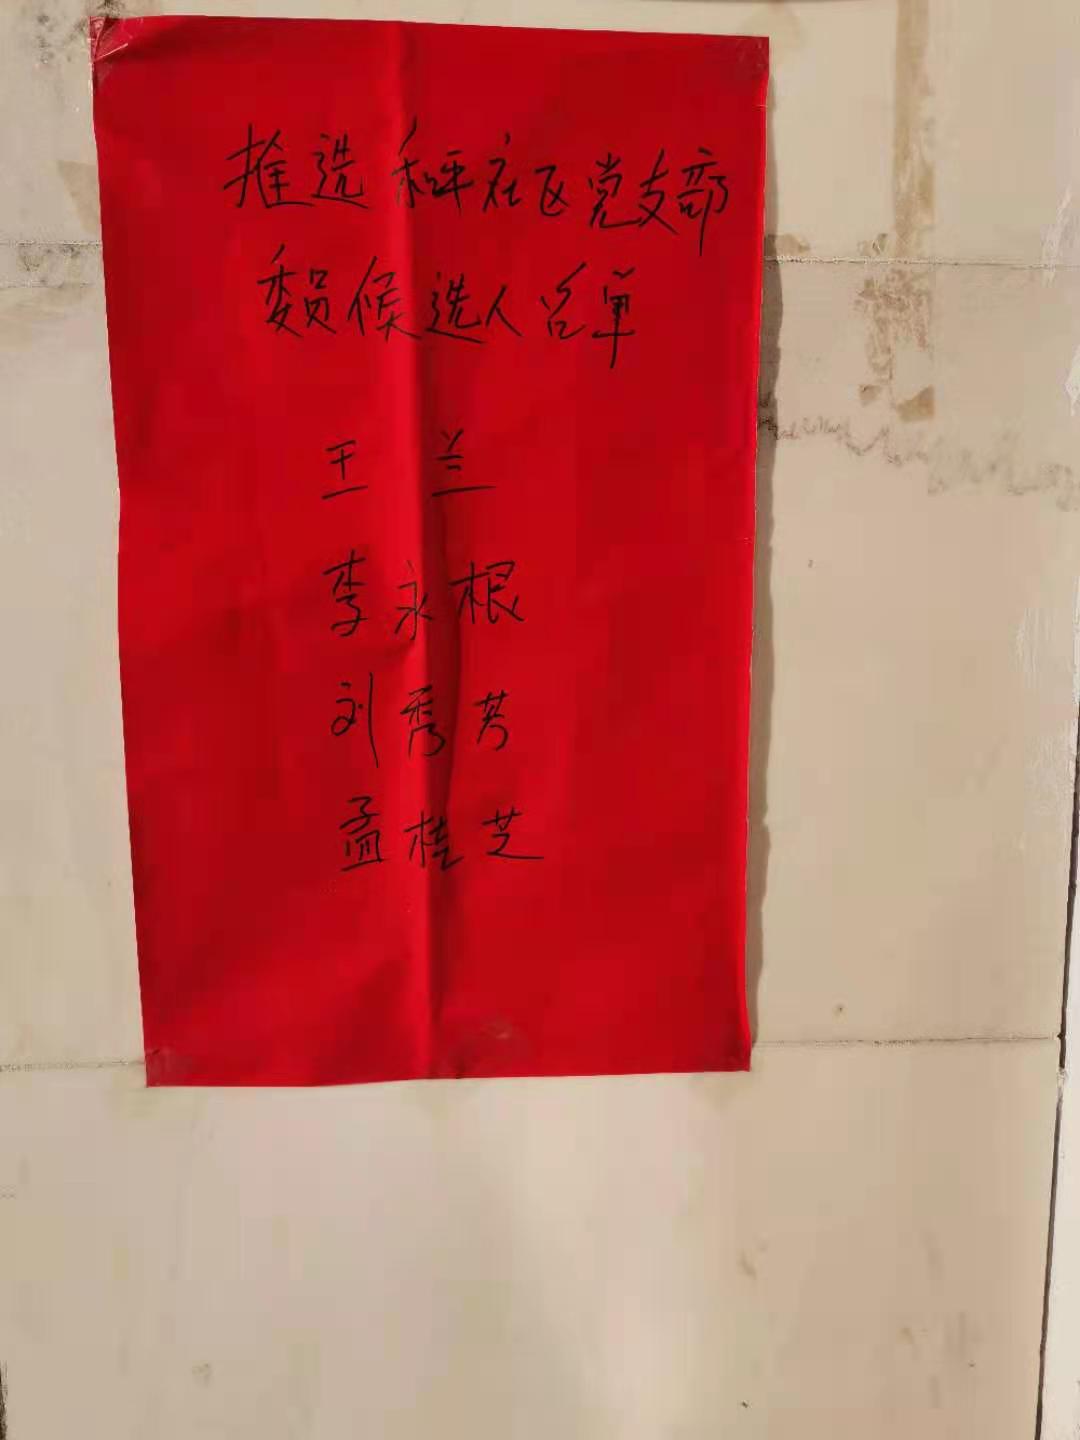 推选和平社区党支部
委员候选人名单
王兰
李永根
刘秀芳
孟桂芝